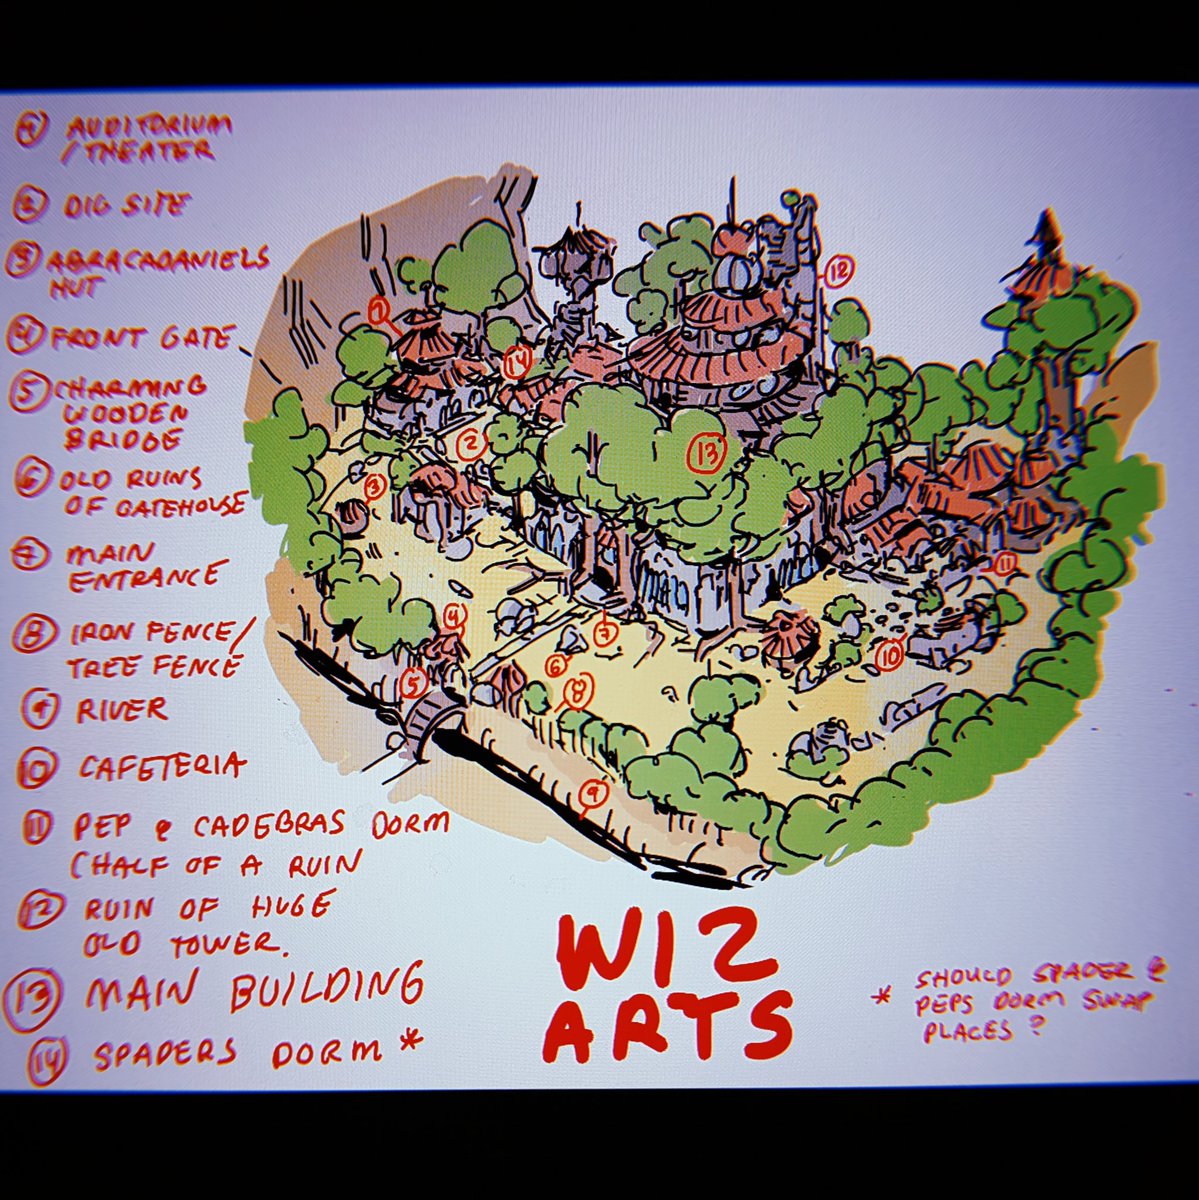 1 AUDITORIUM
/THEATER
2 DIG SITE
3 ABRACADANIELS
HUT
4 FRONT GATE
5 CHARMING
WOODEN
BRIDGE
6 OLD RUINS
OF GATEHOUSE
7 MAIN
ENTRANCE
8 IRON FENCE/
TREE FENCE
9 RIVER
10 CAFETERIA
11 PEP & CADEBRAS DORM
(HALF OF A RUIN
12 RUIN OF HUGE
OLD TOWER.
13 MAIN BUILDING
14 SPADERS DORM *
1
12
14
2
13
3
11
4
7
10
6
5
8
9
WIZ
ARTS
* SHOULD SPADER &
PEPS DORM SWAP
PLACES?